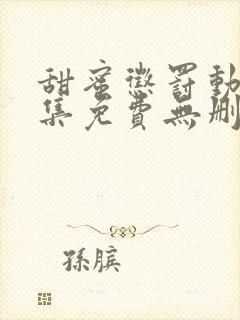 甜蜜懲罰動
集免費無刪
孫臏